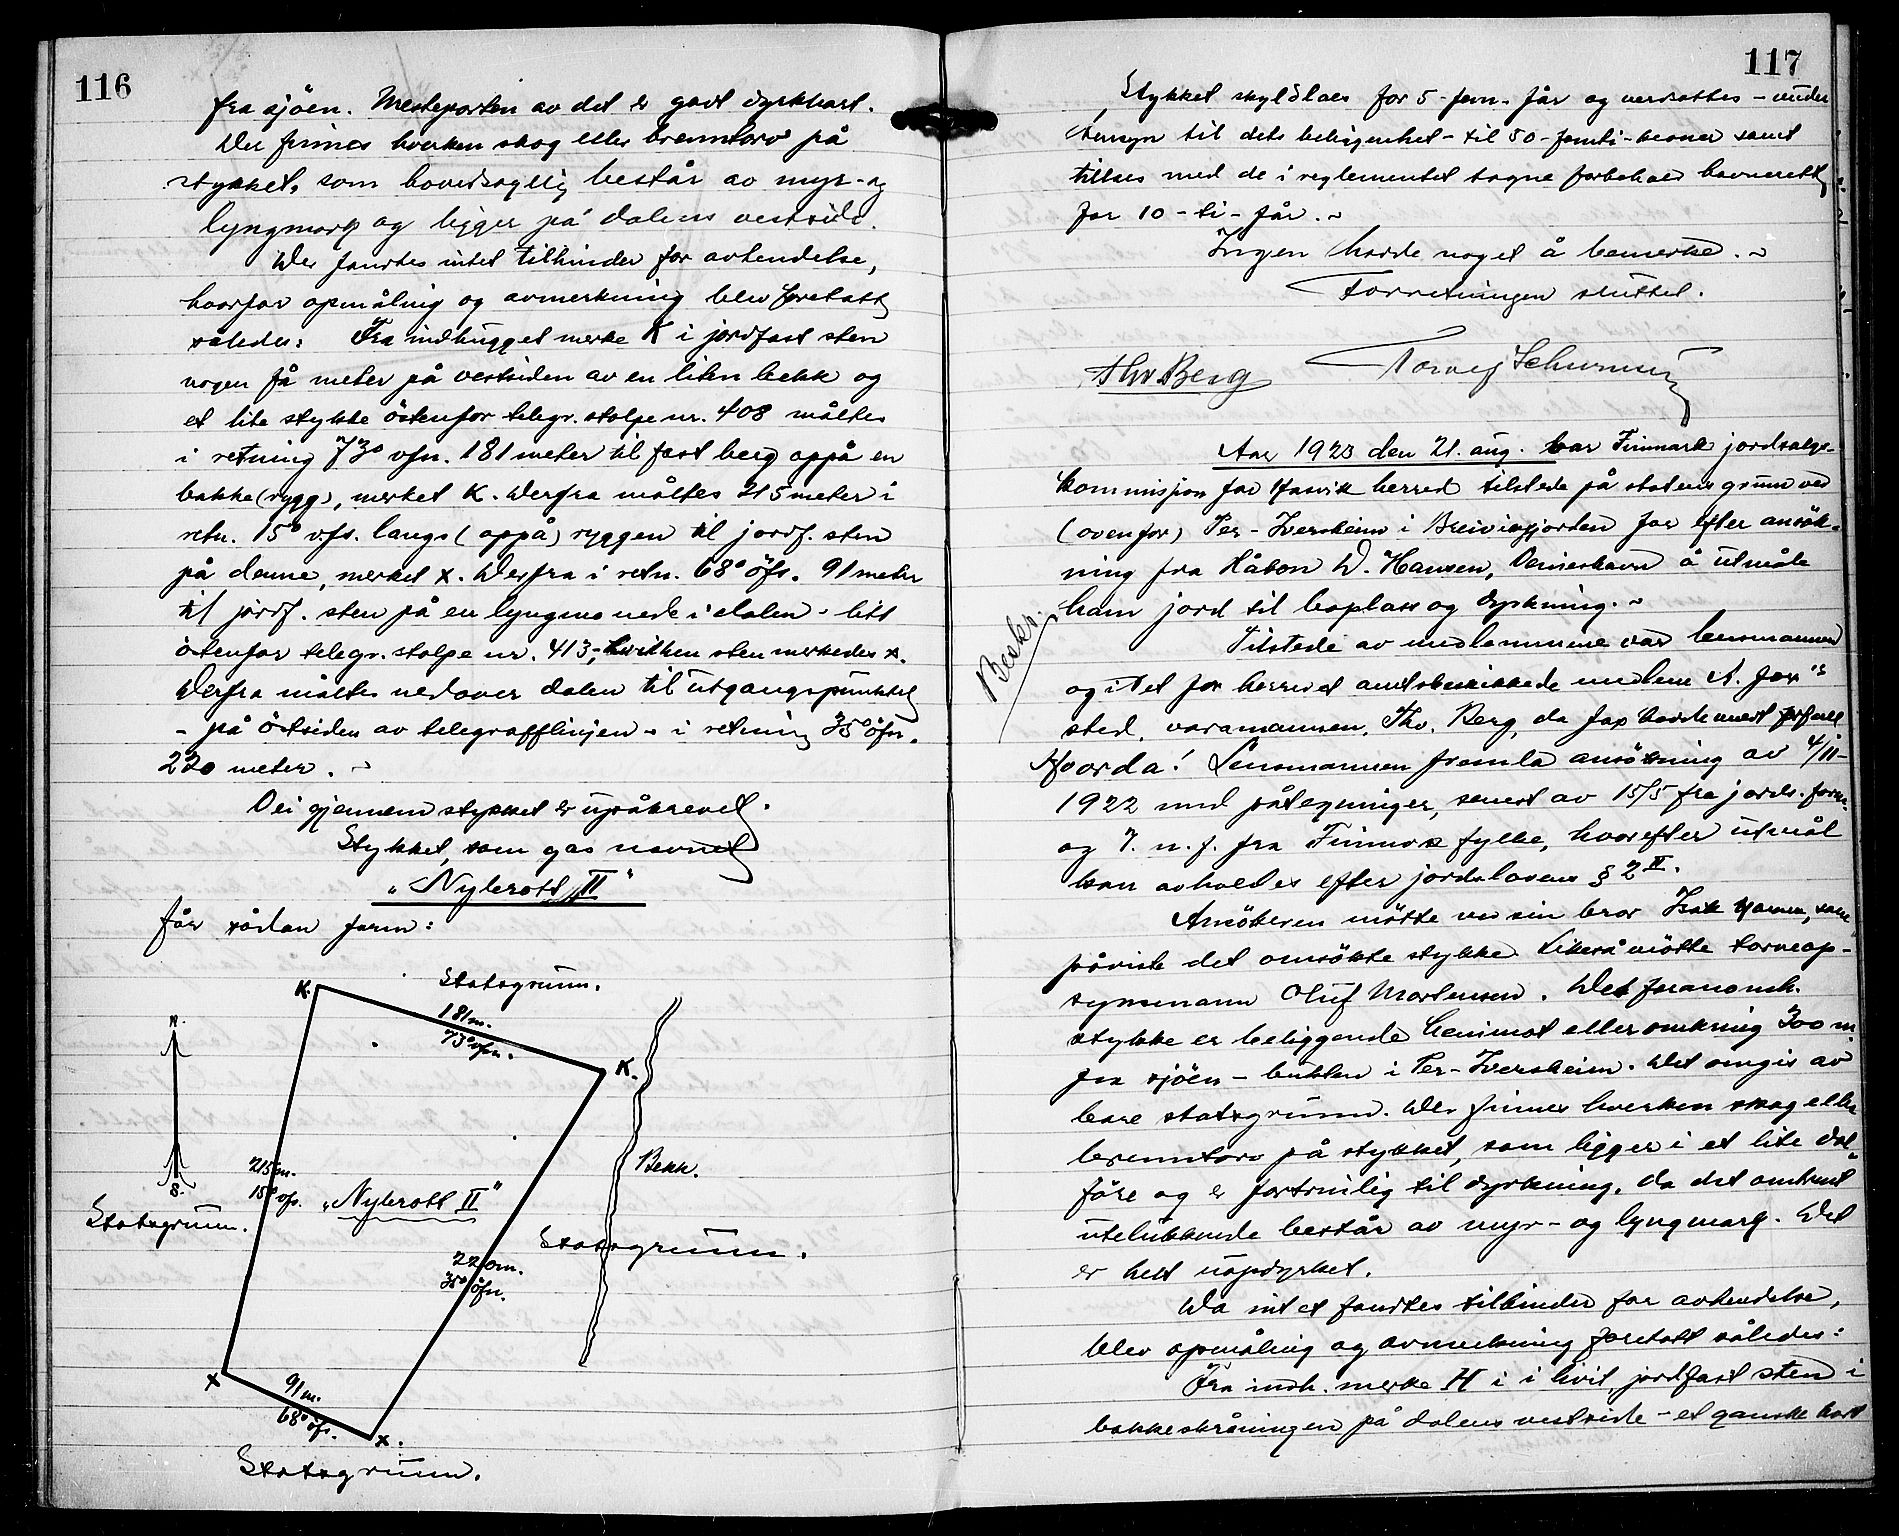 116
fra sjöen. Mesteparten av det er godt dyrkbart.
Der finnes hverken skog eller brenntorv på
stykket, som hovedsaglig består av myr- og
lyngmark og ligger på dalens vestside.
Der fandtes intet tilhinder for avhendelse,
hvorfor opmåling og avmerkning blev foretatt
således: Fra indhugget merke K i jordfast sten
nogen få meter på vestsiden av en liten bekk og
et lite stykke östenfor telegr. stolpe nr. 408 måltes
i retning 73° vfn. 181 meter til fast berg oppå en
bakke (rygg), merket K. Derfra måltes 215 meter i
retn. 15° vfs. langs (oppå) ryggen til jordf. sten
på denne, merket x. Derfra i retn. 68° öfs. 91 meter
til jordf. sten på en lyngmo nede i dalen - litt
östenfor telegr. stolpe nr. 413, hvilken sten merkedes x.
Derfra måltes nedover dalen til utgangspunktet
- på östsiden av telegrafflinjen - i retning 35° öfn.
220 meter. -
Vei gjennem stykket er upåkrevet.
Stykket, som gas navnet
"Nybrott II"
får sådan form:
Statsgrunn.
K.
181 m.
73° vfn.
N.
K.
215 m.
15° vfs.
"Nybrott II"
Bekk.
S.
Statsgrunn.
Statsgrunn.
220 m.
35° öfn.
x
91 m.
68° öfs.
x.
Statsgrunn.
117
Stykket skyldlaes for 5 - fem - før og verdsattes - under
hensyn til dets beliggenhet - til 50 - femti - kroner samt
tillaes med de i reglementet tagne forbehold havnerett
for 10 - ti - får. -
Ingen hadde noget å bemerke. -
Forretningen sluttet.
Thv Berg
Aar 1923 den 21. aug. var Finmark jordsalgs-
kommisjon for Hasvik herred tilstede på statens grunn ved
(ovenfor) Per-Iversheim i Breiviкfjorden for efter ansök-
ning fra Håkon D. Hansen, å utmåle
ham jord til boplass og dyrkning. -
Beskr.
Tilstede av medlemmene var lensmannen
og i det for herredet amtsbeskikkede medlem A. Jax-
sted, varamannen, Thv. Berg, da Jax hadde meldt forfall
Lensmannen fremla ansökning av 4/11-
1922 med påtegninger, senest av 15/5 fra jords. form.
og 7. n. f. fra Finmark fylke, hvorefter utmål
kan avholdes efter jordslovens § 2 II.
Ansökeren mötte ved sin bror Isak Hansen, som
påviste det omsökte stykke. Likeså mötte torvop-
synsmann Oluf Mortensen. Det foranomh.
stykke er beliggende henimot eller omkring 300 m.
fra sjöen - bukten i Per-Iversheim. Det omgis av
bare statsgrunn. Der finnes hverken skog eller
brenntorv på stykket, som ligger i et lite dal-
före og er fortrinlig til dyrkning, da det omtrent
utelukkende består av myr- og lyngmark. Det
er helt uopdyrket.
Da intet fandtes tilhinder for avhendelse,
blev opmåling og avmerkning foretatt således:
Fra indh. merke H i i hvit jordfast sten i
bakkeskråningen på dalens vestside - et ganske kort